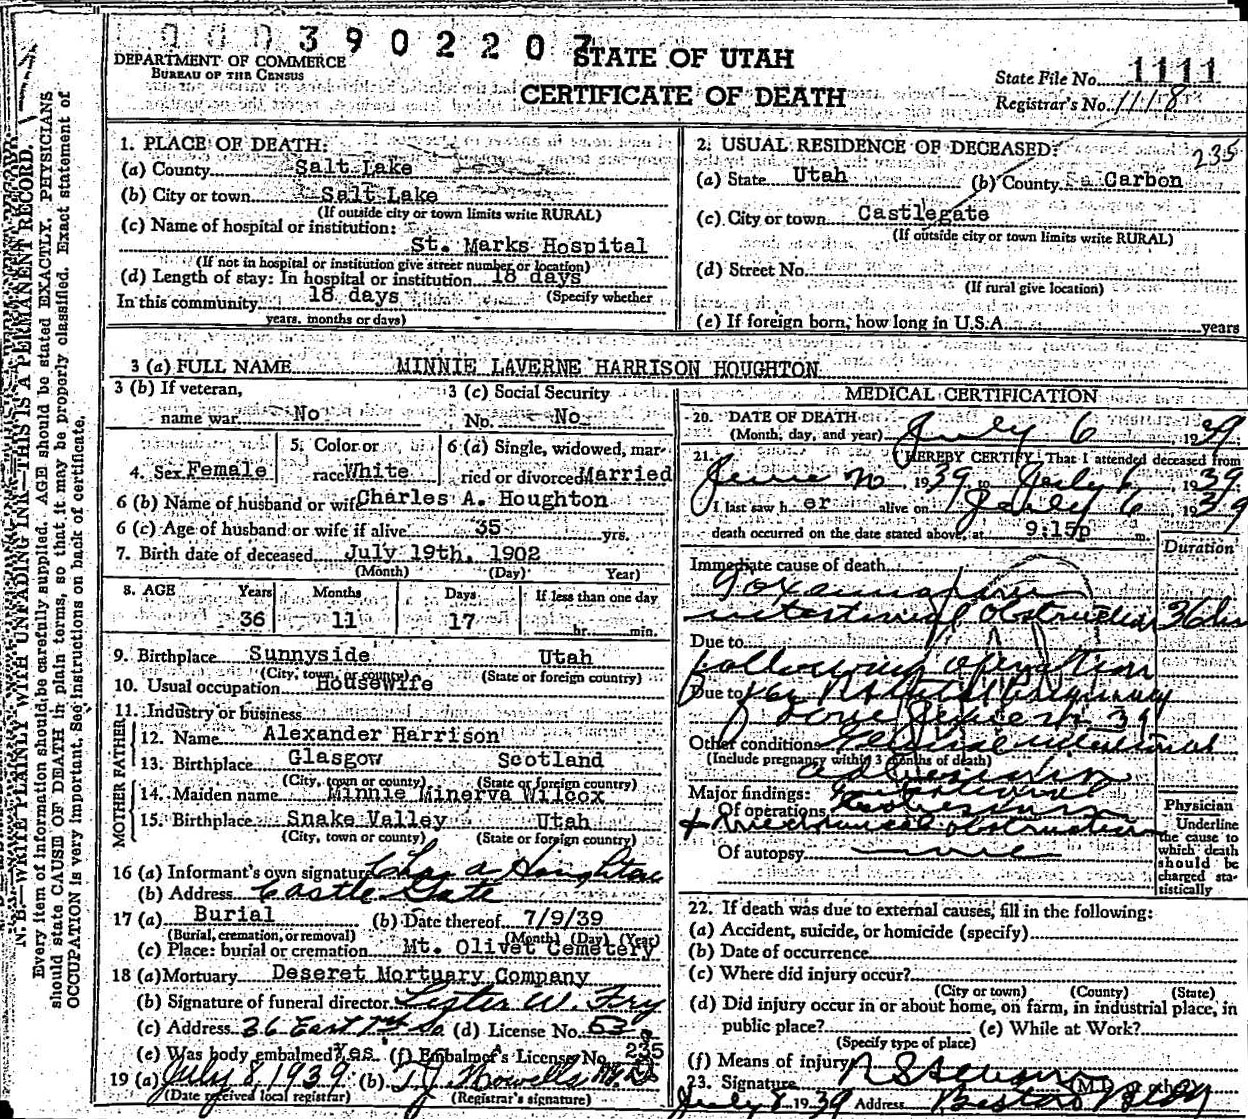 3902207
DEPARTMENT OF COMMERCE
BUREAU OF THE CENSUS
STATE OF UTAH
CERTIFICATE OF DEATH
State File No. 1111
Registrar's No. 1118
N. B.—WRITE PLAINLY WITH UNFADING INK—THIS IS A PERMANENT RECORD.
Every item of information should be carefully supplied. AGE should be stated EXACTLY. PHYSICIANS
should state CAUSE OF DEATH in plain terms, so that it may be properly classified. Exact statement of
OCCUPATION is very important. See instructions on back of certificate.
1. PLACE OF DEATH:
(a) County Salt Lake
(b) City or town Salt Lake
(If outside city or town limits write RURAL)
(c) Name of hospital or institution:
St. Marks Hospital
(If not in hospital or institution give street number or location)
(d) Length of stay: In hospital or institution 18 days
(Specify whether
In this community 18 days
years, months or days)
2. USUAL RESIDENCE OF DECEASED:
235
(a) State Utah (b) County Carbon
(c) City or town Castlegate
(If outside city or town limits write RURAL)
(d) Street No.
(If rural give location)
(e) If foreign born, how long in U.S.A. years
3 (a) FULL NAME MINNIE LAVERNE HARRISON HOUGHTON
3 (b) If veteran,
name war No
3 (c) Social Security
No. No
4. Sex Female
5. Color or
race White
6 (a) Single, widowed, mar-
ried or divorced Married
6 (b) Name of husband or wife Charles A. Houghton
6 (c) Age of husband or wife if alive 35 yrs.
7. Birth date of deceased July 19th, 1902
(Month) (Day) (Year)
8. AGE Years Months Days If less than one day
36 11 17 hr. min.
9. Birthplace Sunnyside Utah
(City, town, or county) (State or foreign country)
10. Usual occupation Housewife
11. Industry or business
FATHER
12. Name Alexander Harrison
13. Birthplace Glasgow Scotland
(City, town or county) (State or foreign country)
MOTHER
14. Maiden name Minnie Minerva Wilcox
15. Birthplace Snake Valley Utah
(City, town or county) (State or foreign country)
16 (a) Informant's own signature Chas A Houghton
(b) Address Castle Gate
17 (a) Burial (b) Date thereof 7/9/39
(Burial, cremation, or removal) (Month) (Day) (Year)
(c) Place: burial or cremation Mt. Olivet Cemetery
18 (a) Mortuary Deseret Mortuary Company
(b) Signature of funeral director Lester W. Fry
(c) Address 36 East 7th So. (d) License No. 63
(e) Was body embalmed? Yes (f) Embalmer's License No. 235
19 (a) July 8, 1939 (b) T J Howells M.D.
(Date received local registrar) (Registrar's signature)
MEDICAL CERTIFICATION
20. DATE OF DEATH
(Month, day, and year) July 6, 1939
21. I HEREBY CERTIFY, That I attended deceased from
June 20 1939 to July 6 1939
I last saw h er alive on July 6 1939
death occurred on the date stated above, at 9:15p m.
Duration
Immediate cause of death
Toxaemia
intestinal obstruction 36 hrs
Due to
following operation
Due to for
Pregnancy
done June 39
Other conditions intestinal
(Include pregnancy within 3 months of death)
adhesion
Major findings:
Of operations
+ mechanical obstruction
Of autopsy none
Physician
Underline
the cause to
which death
should be
charged sta-
tistically
22. If death was due to external causes, fill in the following:
(a) Accident, suicide, or homicide (specify)
(b) Date of occurrence
(c) Where did injury occur?
(City or town) (County) (State)
(d) Did injury occur in or about home, on farm, in industrial place, in
public place? (e) While at Work?
(Specify type of place)
(f) Means of injury
23. Signature (M.D. or other)
July 8 1939 Address Boston Bldg